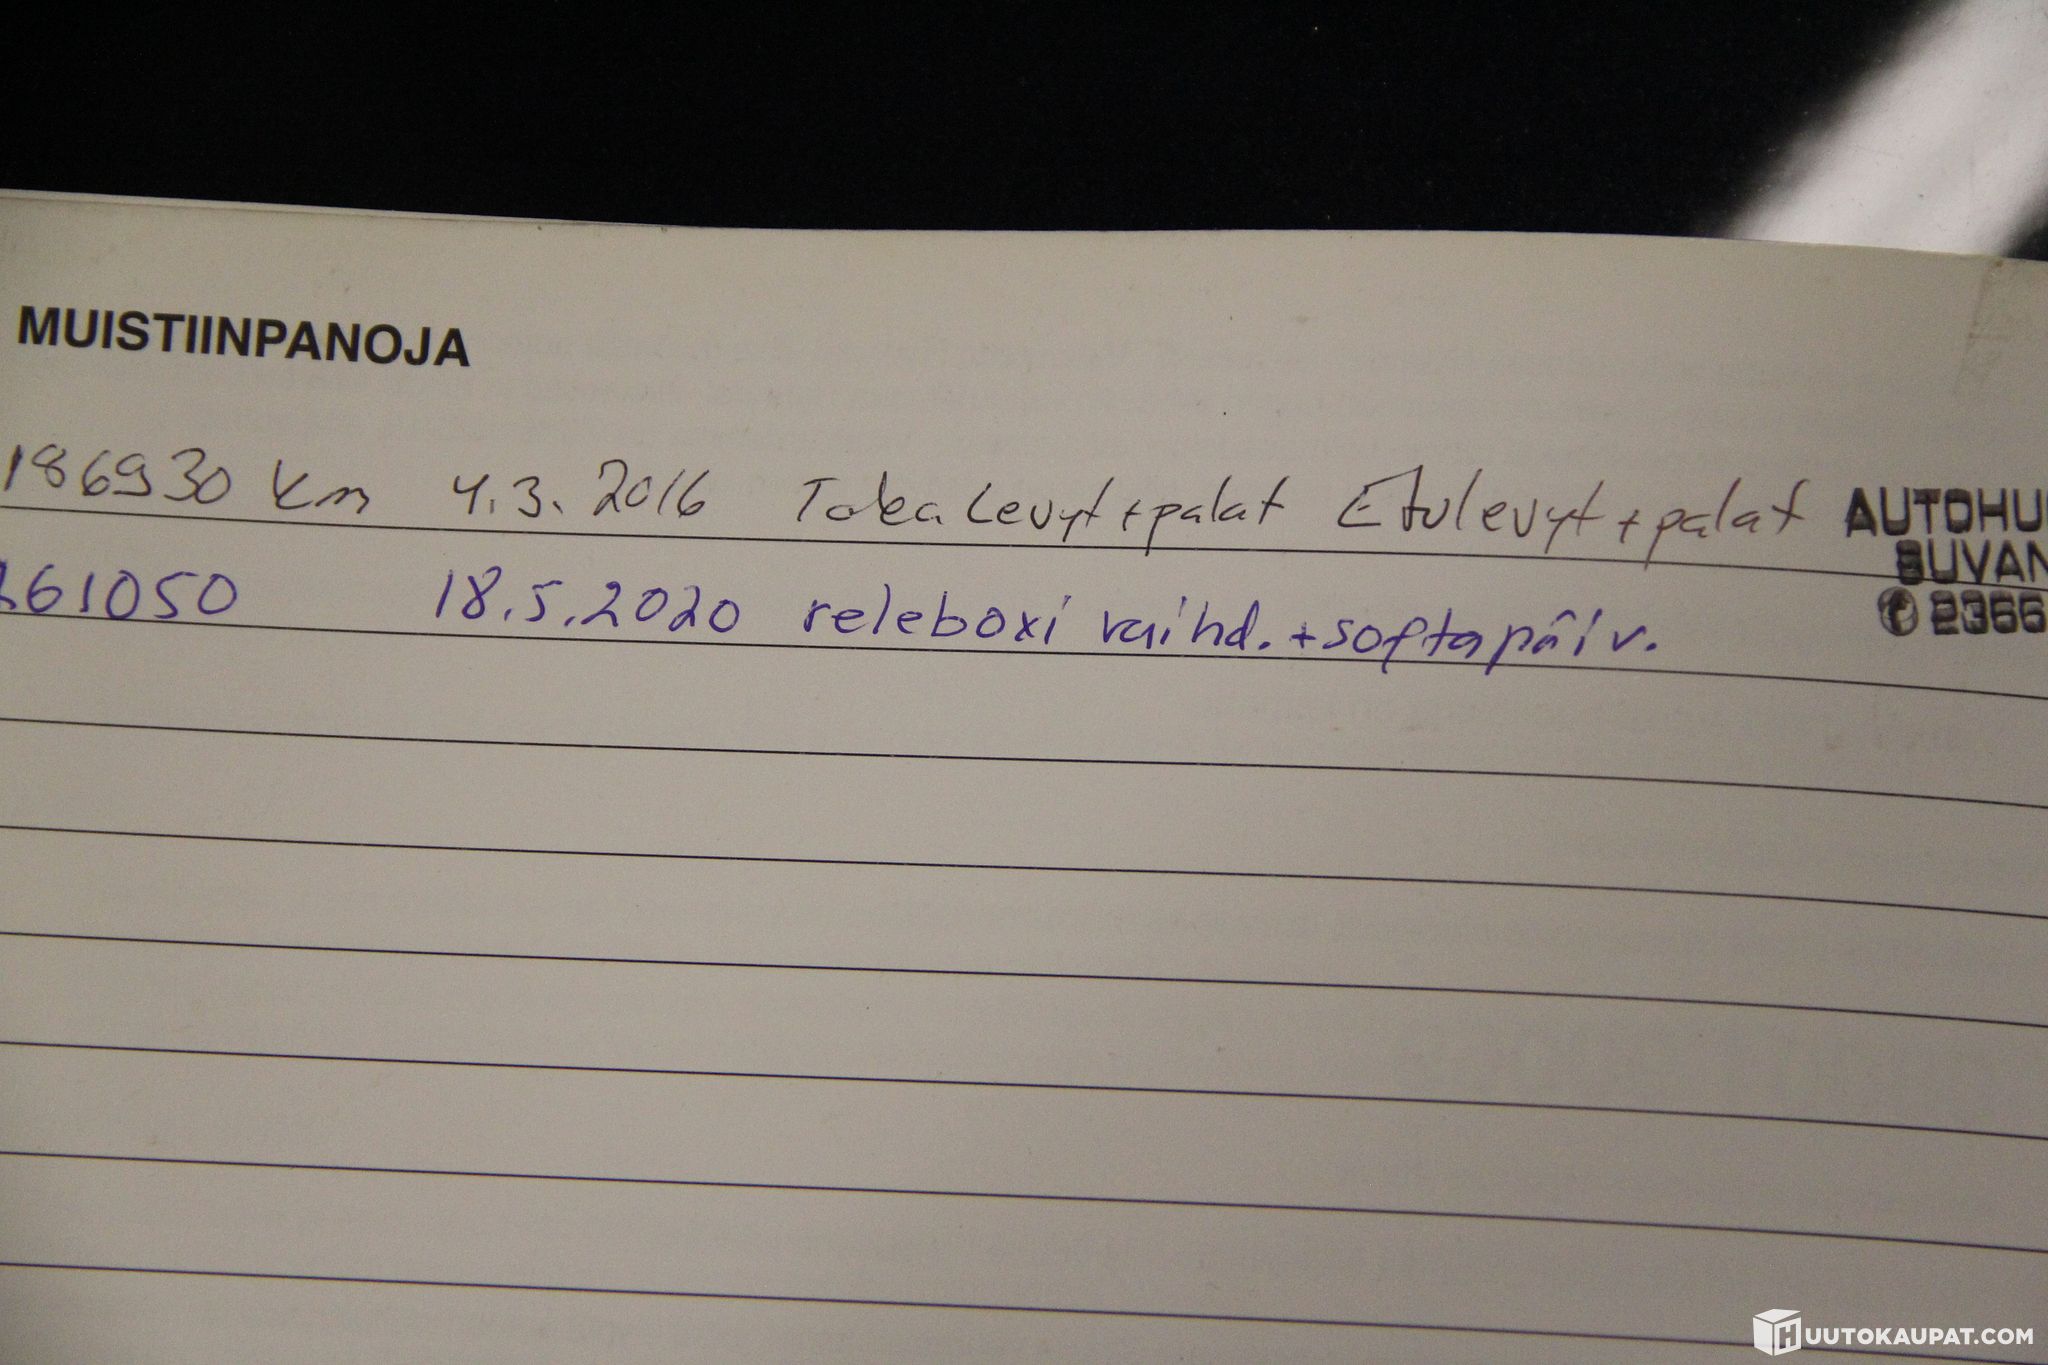 MUISTIINPANOJA
186930 km 4.3.2016 Takalevyt+palat Etulevyt+palat
AUTOHU
BUVAN
261050 18.5.2020 releboxi vaihd.+softapäiv.
✆ 2366
HUUTOKAUPAT.COM